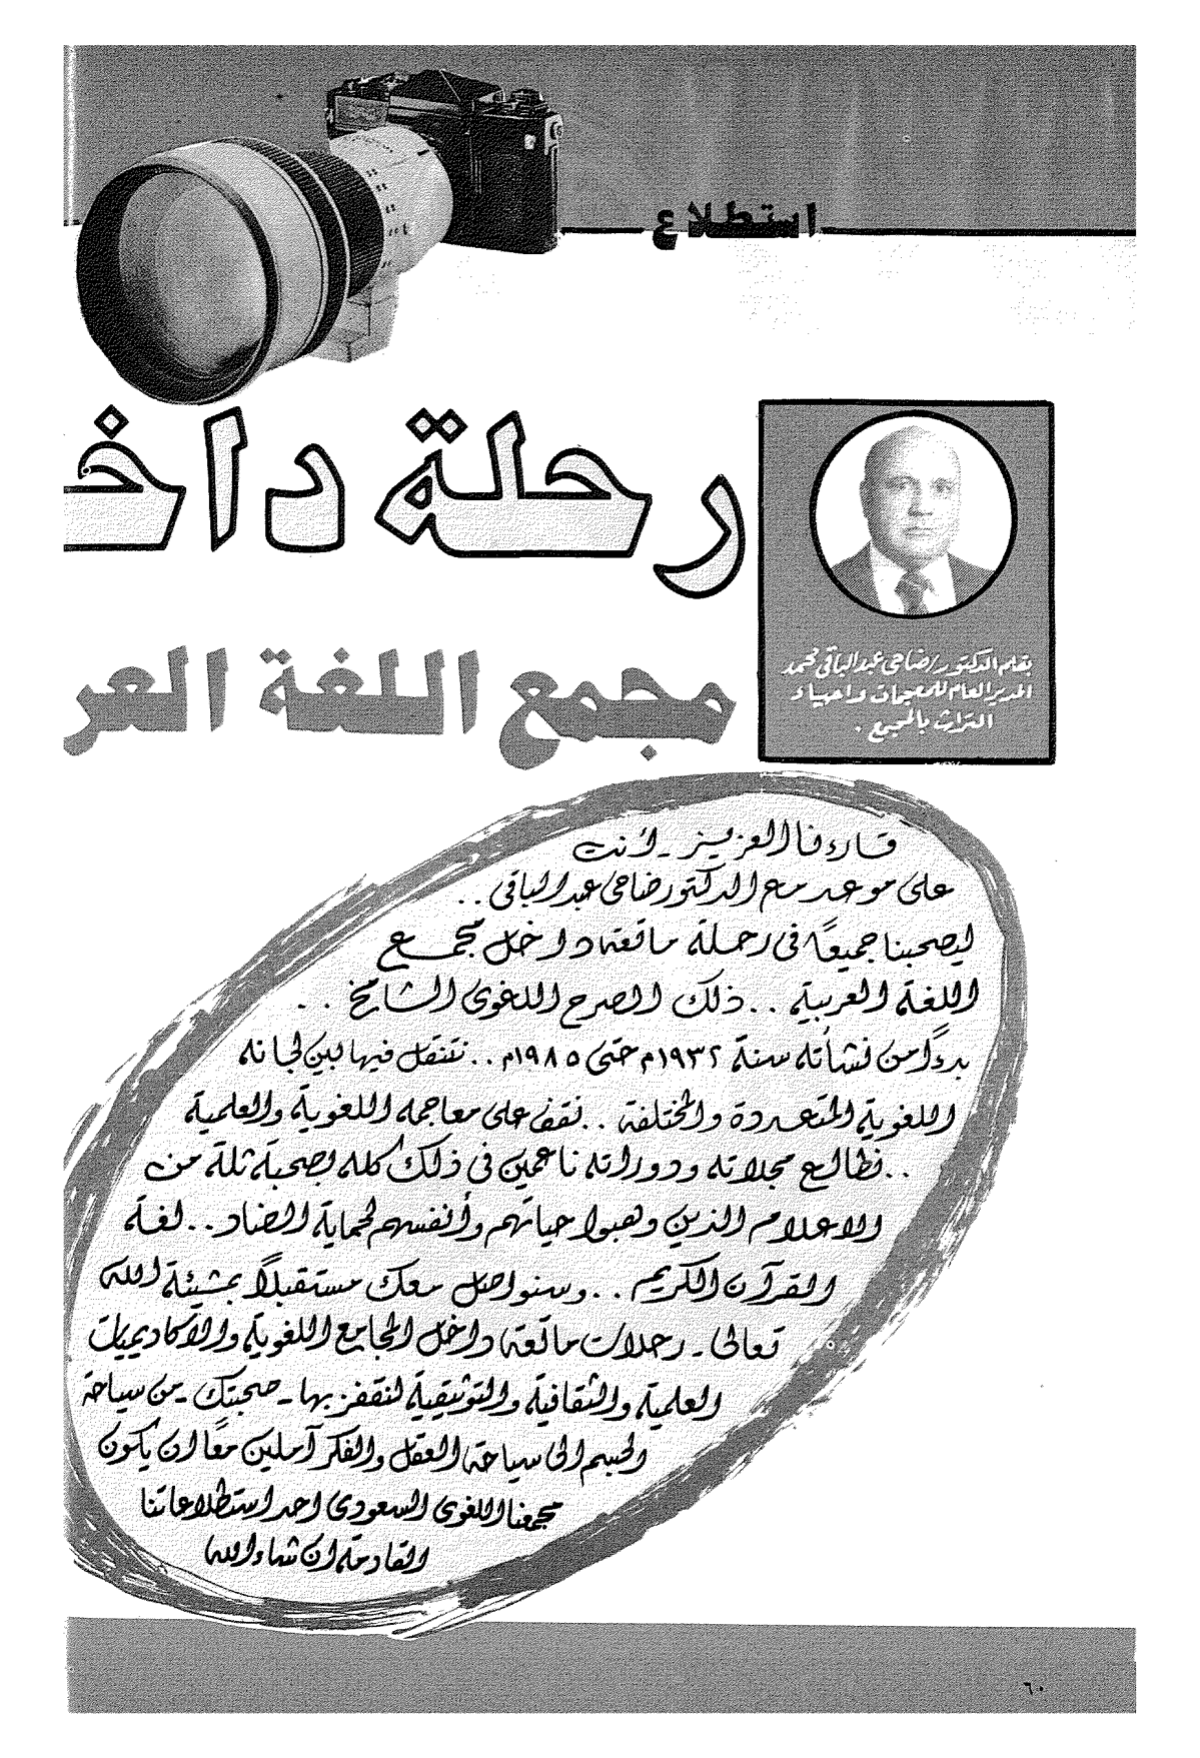 استطلاع
رحلة داخ
مجمع اللغة العر
بقلم الدكتور/ضاحى عبدالباقى محمد
المدير العام للمعجمات واحياء
التراث بالمجمع .
قارءنا العزيز - أنت
على موعد مع الدكتور ضاحى عبدالباقى ..
ليصحبنا جميعًا فى رحلة ماتعة داخل مجمع
اللغة العربية .. ذلك الصرح اللغوى الشامخ ..
بدءًا من نشأته سنة ١٩٣٢م حتى ١٩٨٥م .. نتنقل فيها بين لجانه
اللغوية المتعددة والمختلفة .. نقف على معاجمه اللغوية والعلمية
.. نطالع مجلاته ودوراته ناعمين فى ذلك كله بصحبة ثلة من
الاعلام الذين وهبوا حياتهم وأنفسهم لحماية الضاد .. لغة
القرآن الكريم .. وسنواصل معك مستقبلاً بمشيئة الله
تعالى - رحلات ماتعة داخل المجامع اللغوية والأكاديميات
العلمية والثقافية والتوثيقية لنقفز بها - صحبتك - من سياحة
الجسم الى سياحة العقل والفكر آملين معًا ان يكون
مجمعنا اللغوى السعودى احد استطلاعاتنا
القادمة ان شاء الله
٦٠